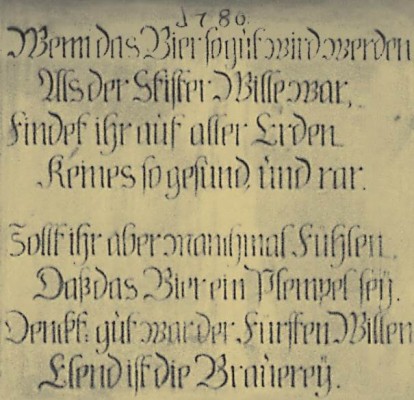 1780.
Wenn das Bier so gùt wird werden
Als der Stifter Wille war,
Findet ihr aùf aller Erden
Keines so gesùnd, ùnd rar.
Sollt ihr aber manchmal Fühlen,
Daß das Bier ein Plempel seÿ.
Denkt: gùt war der Fürsten Willen
Elend ist die Braùereÿ.